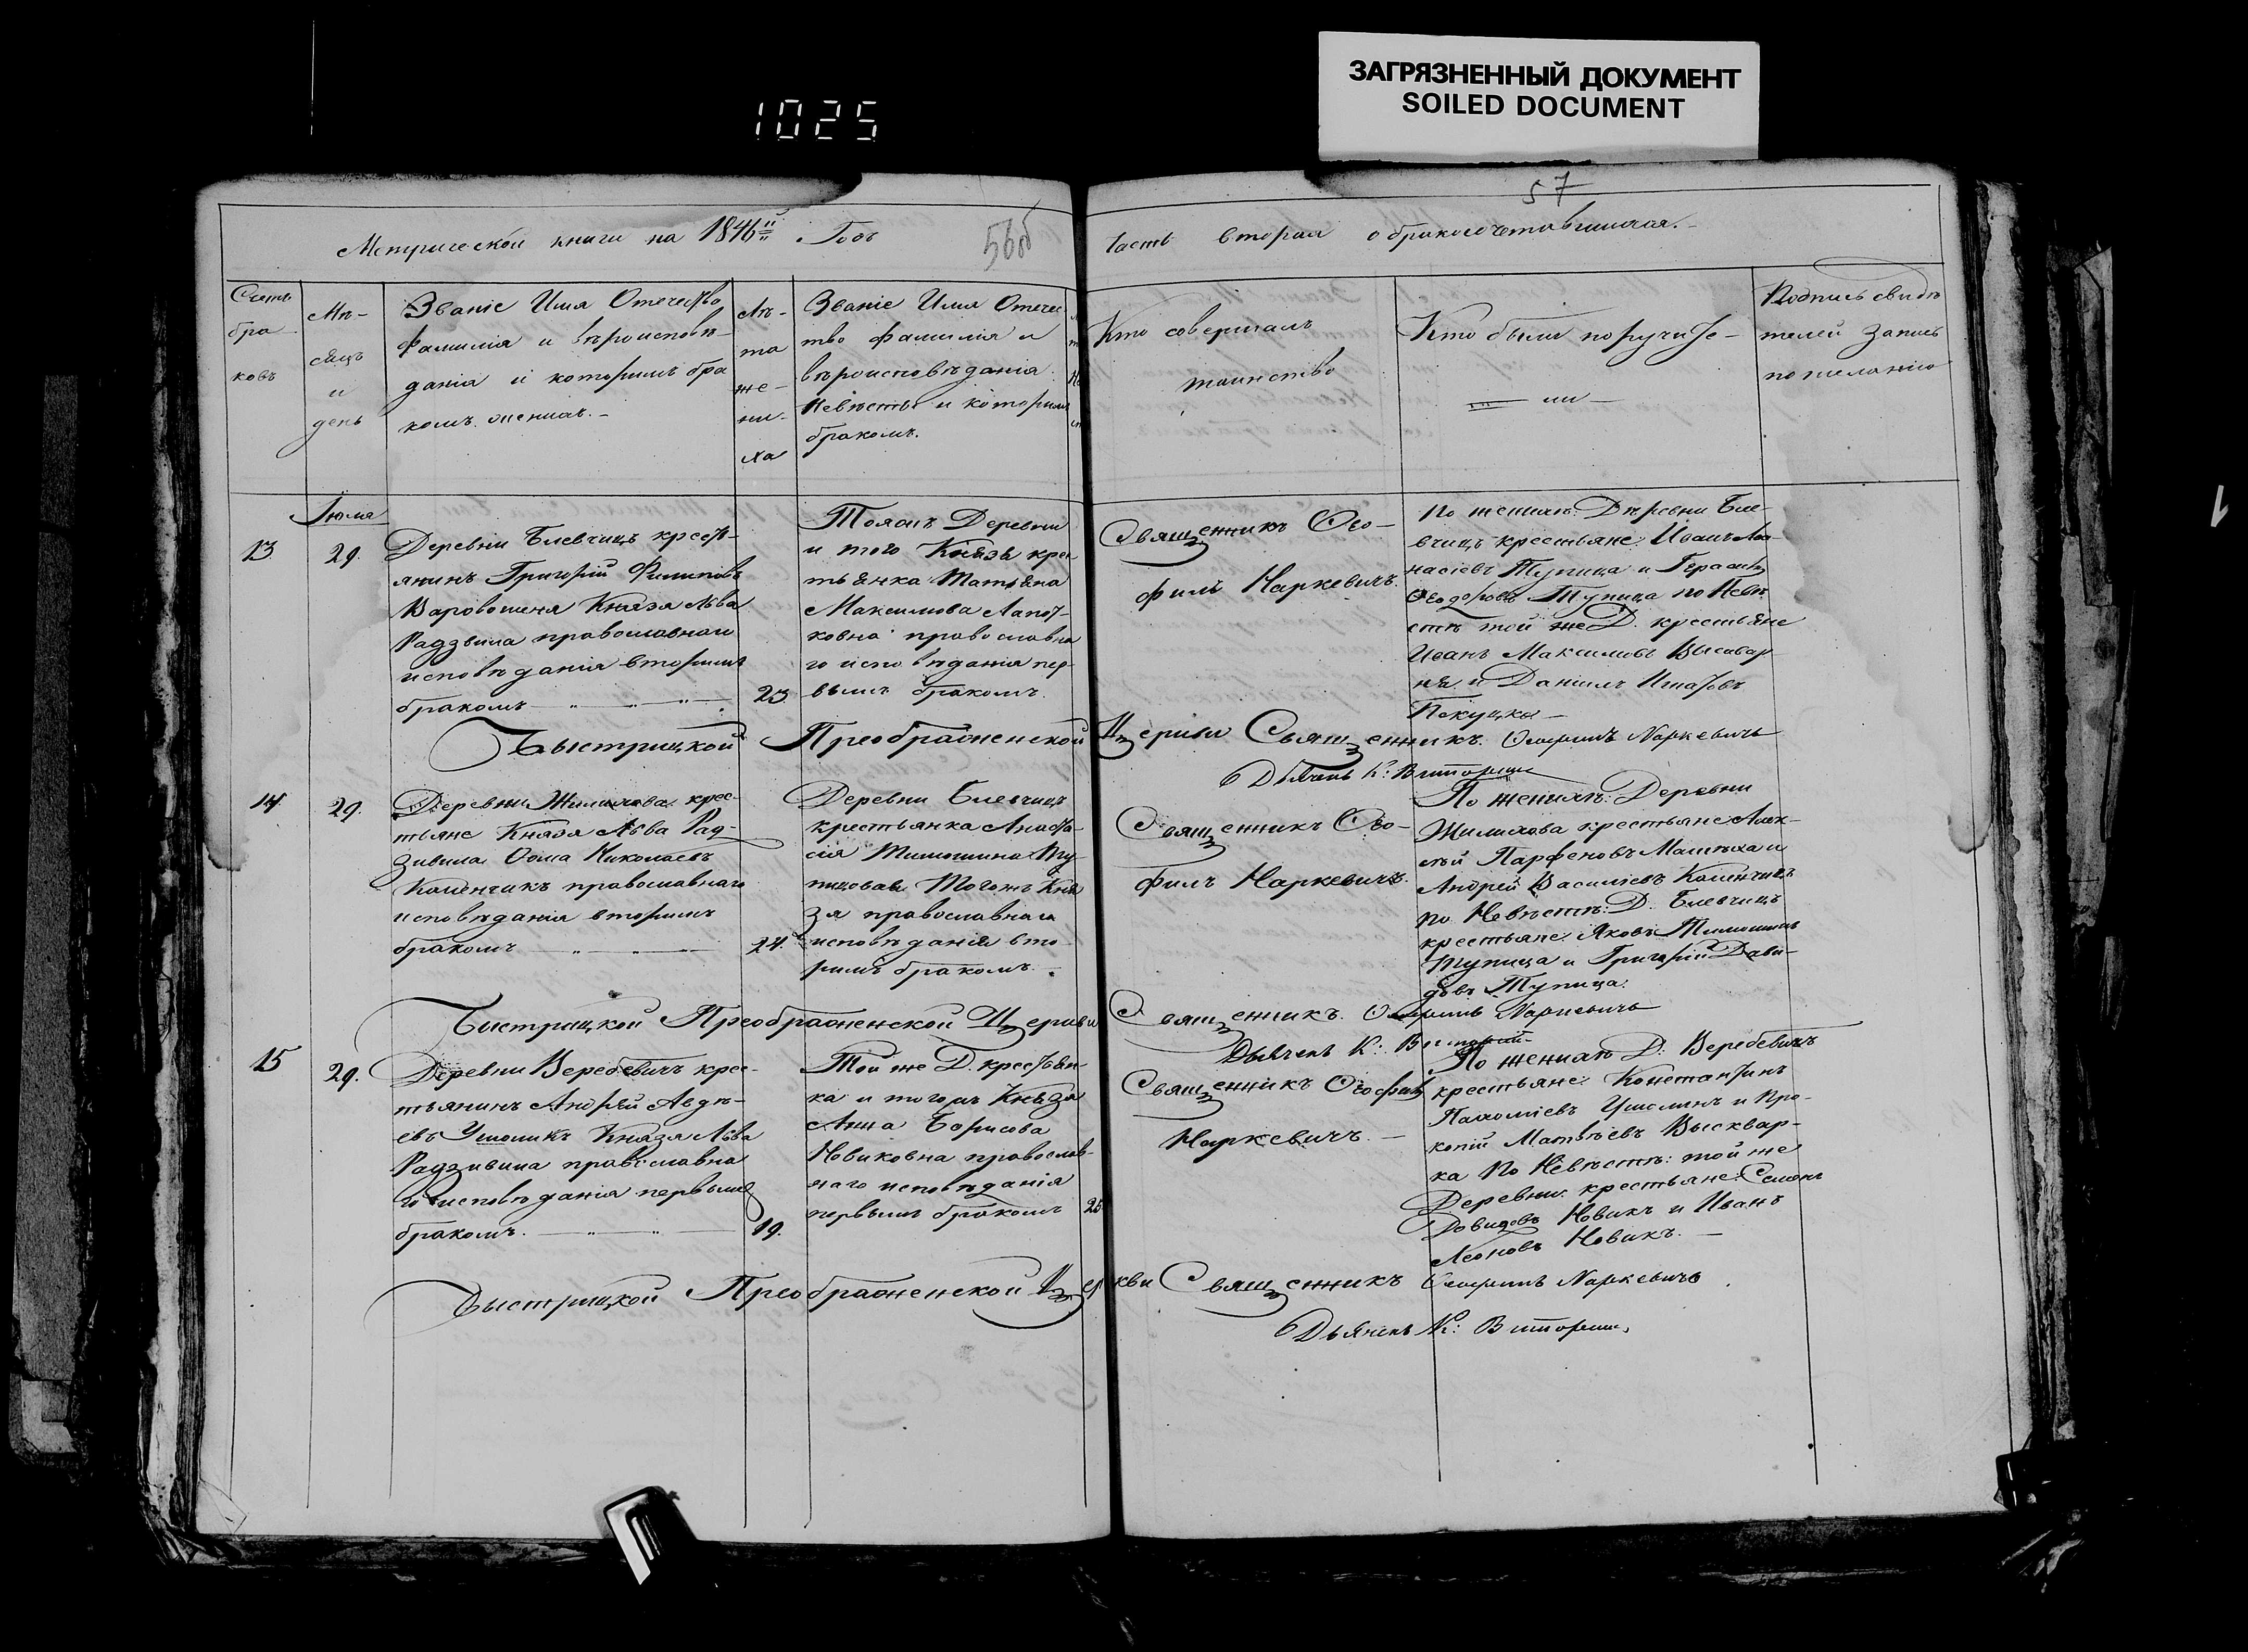 ЗАГРЯЗНЕННЫЙ ДОКУМЕНТ
SOILED DOCUMENT
1025
57
Метрической книги на 1846й Годъ
56об
Часть вторая о бракосочетавшихся.
Счетъ
бра
ковъ
Мѣ-
сяцъ
и
день
Званіе Имя Отечество
Фамилія и вѣроисповѣ-
данія и которымъ бра
комъ женихъ.-
Лѣ-
та
же-
ни-
ха
Званіе Имя Отечес
тво фамилія и
вѣроисповѣданія
Невѣсты и которымъ
бракомъ.
Кто совершалъ
таинство
Кто были поручите-
ли
Подпись свидѣ
телей запись
по желанію
Іюля
13
29.
Деревни Блевчицъ кресть-
янинъ Григорій Филиповъ
Князя Льва
Радзвила православнаго
исповѣданія вторымъ
бракомъ
23
Тояжъ Деревни
и того Князя крес
тьянка Татьяна
Максимова
православна
го исповѣданія пер-
вымъ бракомъ.
Священникъ Ѳео-
филъ Наркевичъ.
По женихѣ: Деревни Бле-
вчицъ крестьяне: Иванъ Афа-
насіевъ Тупица и Герасимъ
Ѳеодоровъ Тупица по Невѣ
стѣ той же Д. крестьяне
Иванъ Максимовъ
и Даніилъ
Быстрицкой Преображенской Церкви Священникъ. Ѳеофилъ Наркевичъ
Дьячекъ К:
14
29.
Деревни Жилихова крес-
тьяне Князя Льва Рад-
зивила Ѳома Николаевъ
Каменчикъ православнаго
исповѣданія вторымъ
бракомъ
24.
Деревни Блевчицъ
крестьянка Анаста-
сія Тимошина Ту-
пицова Тогожъ Кня
зя православнаго
исповѣданія вто-
рымъ бракомъ.
Священникъ Ѳео-
филъ Наркевичъ.
По женихѣ: Деревни
Жилихова крестьяне Алек-
сѣй Парфеновъ и
Андрей Василіевъ Каменчикъ
по Невѣстѣ: Д. Блевчицъ
крестьяне Яковъ Тимошинъ
Тупица и Григорій Дави-
довъ Тупица.
Быстрицкой Преображенской Церкви Священникъ. Ѳеофилъ Наркевичъ
Дьячекъ К:
15
29.
Деревни Веребевичъ крес-
тьянинъ Андрей Авдѣ-
евъ Князя Льва
Радзивила православна
го исповѣданія первымъ
бракомъ.
19.
Той же Д. крестьян-
ка и тогожъ Князя
Анна Борисова
Новиковна православ-
наго исповѣданія
первымъ бракомъ
Священникъ Ѳеофилъ
Наркевичъ.
По женихѣ Д: Веребевичъ
крестьяне: Константинъ
Пахоміевъ и Про-
копій Матвѣевъ Высквар-
ка По Невѣстѣ: той же
Деревни крестьяне: Семенъ
Давидовъ Новикъ и Иванъ
Леоновъ Новикъ.
Быстрицкой Преображенской Церкви Священникъ Ѳеофилъ Наркевичъ
Дьячекъ К: